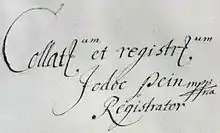 Collat^um et registr^um
Jodoc Pein mppria
Registrator